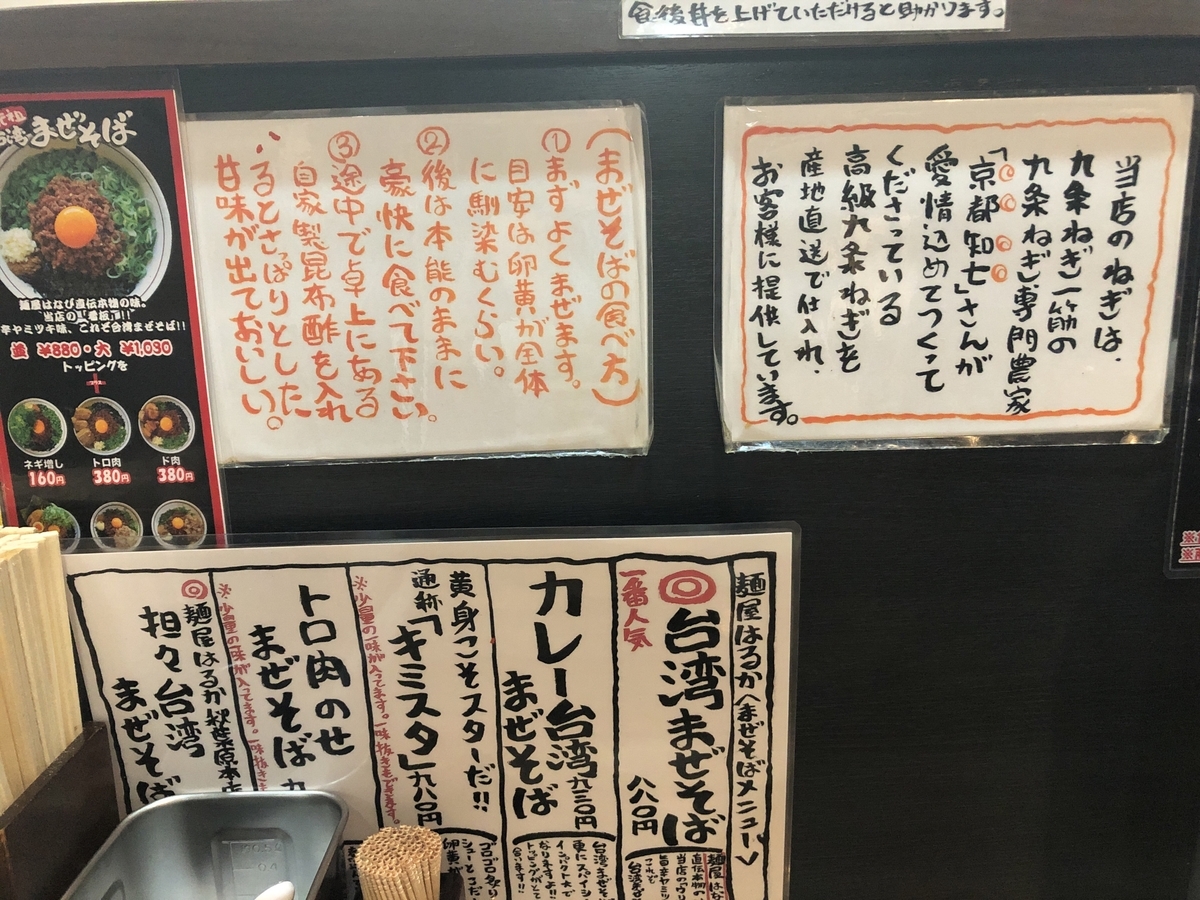 食後丼を上げていただけると助かります。
元祖
台湾まぜそば
麺屋はなび直伝本物の味。
当店の「看板」!!
辛ヤミツキ味、これぞ台湾まぜそば!!
並 ¥880・大 ¥1,030
トッピングを
ネギ増し
160円
トロ肉
380円
ド肉
380円
(まぜそばの食べ方)
①まずよくまぜます。
目安は卵黄が全体
に馴染むくらい。
②後は本能のままに
豪快に食べて下さい。
③途中で卓上にある
自家製昆布酢を入れ
るとさっぱりとした
甘味が出ておいしい。
当店のねぎは、
九条ねぎ一筋の
九条ねぎ専門農家
「京都知七」さんが
愛情込めてつくって
くださっている
高級九条ねぎを
産地直送で仕入れ、
お客様に提供しています。
麺屋はるか〈まぜそばメニュー〉
一番人気
台湾まぜそば
八八〇円
カレー台湾
まぜそば
九三〇円
黄身こそスターだ!!
通称「キミスタ」九八〇円
※少量の一味が入ってます。一味抜きもできます。
トロ肉のせ
まぜそば
※少量の一味が入ってます。一味抜きも
麺屋はるか秋葉原本店
担々台湾
まぜそば
台湾まぜそば
更にスパイシー
インパクト大で